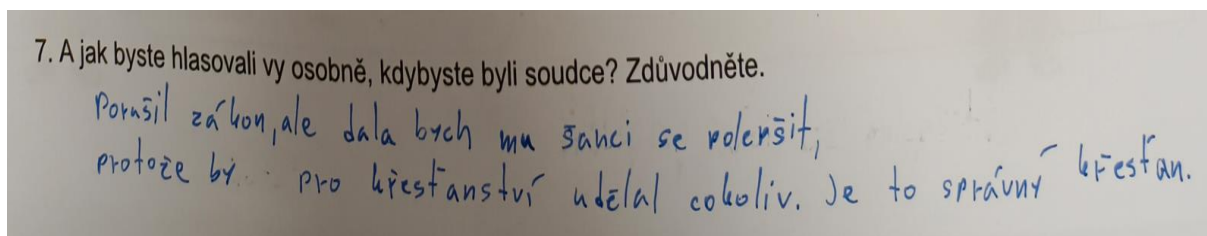 7. A jak byste hlasovali vy osobně, kdybyste byli soudce? Zdůvodněte.
Porušil zákon, ale dala bych mu šanci se polepšit,
protože by pro křesťanství udělal cokoliv. Je to správný křesťan.